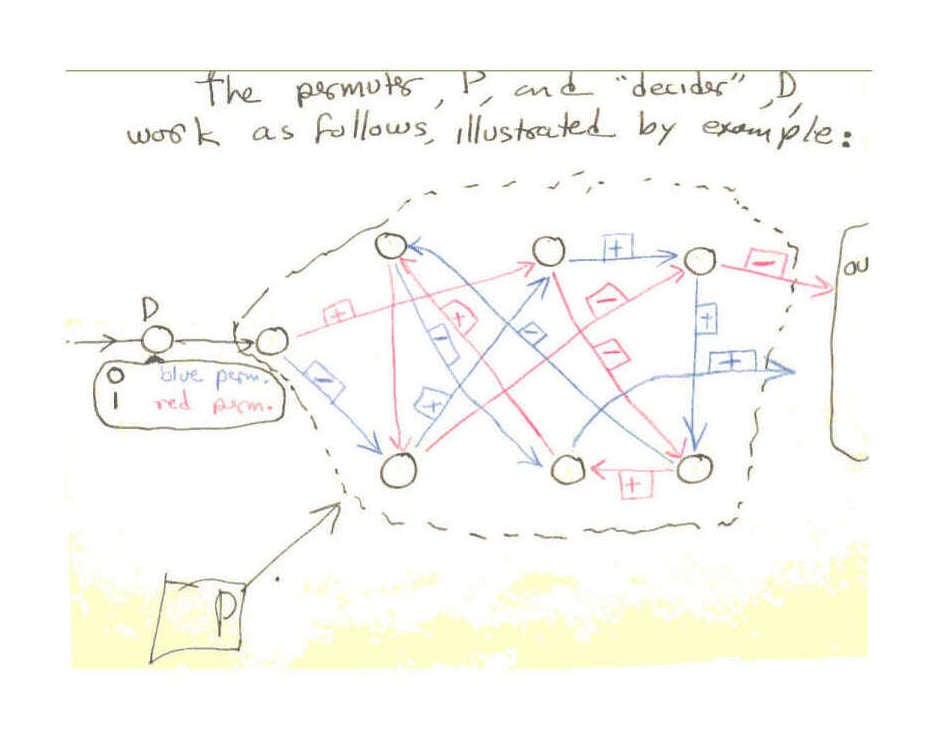 The permuter, P, and "decider", D,
work as follows, illustrated by example:
D
0 blue perm.
1 red perm.
+
-
+
-
+
+
-
-
-
+
+
-
+
ou
P